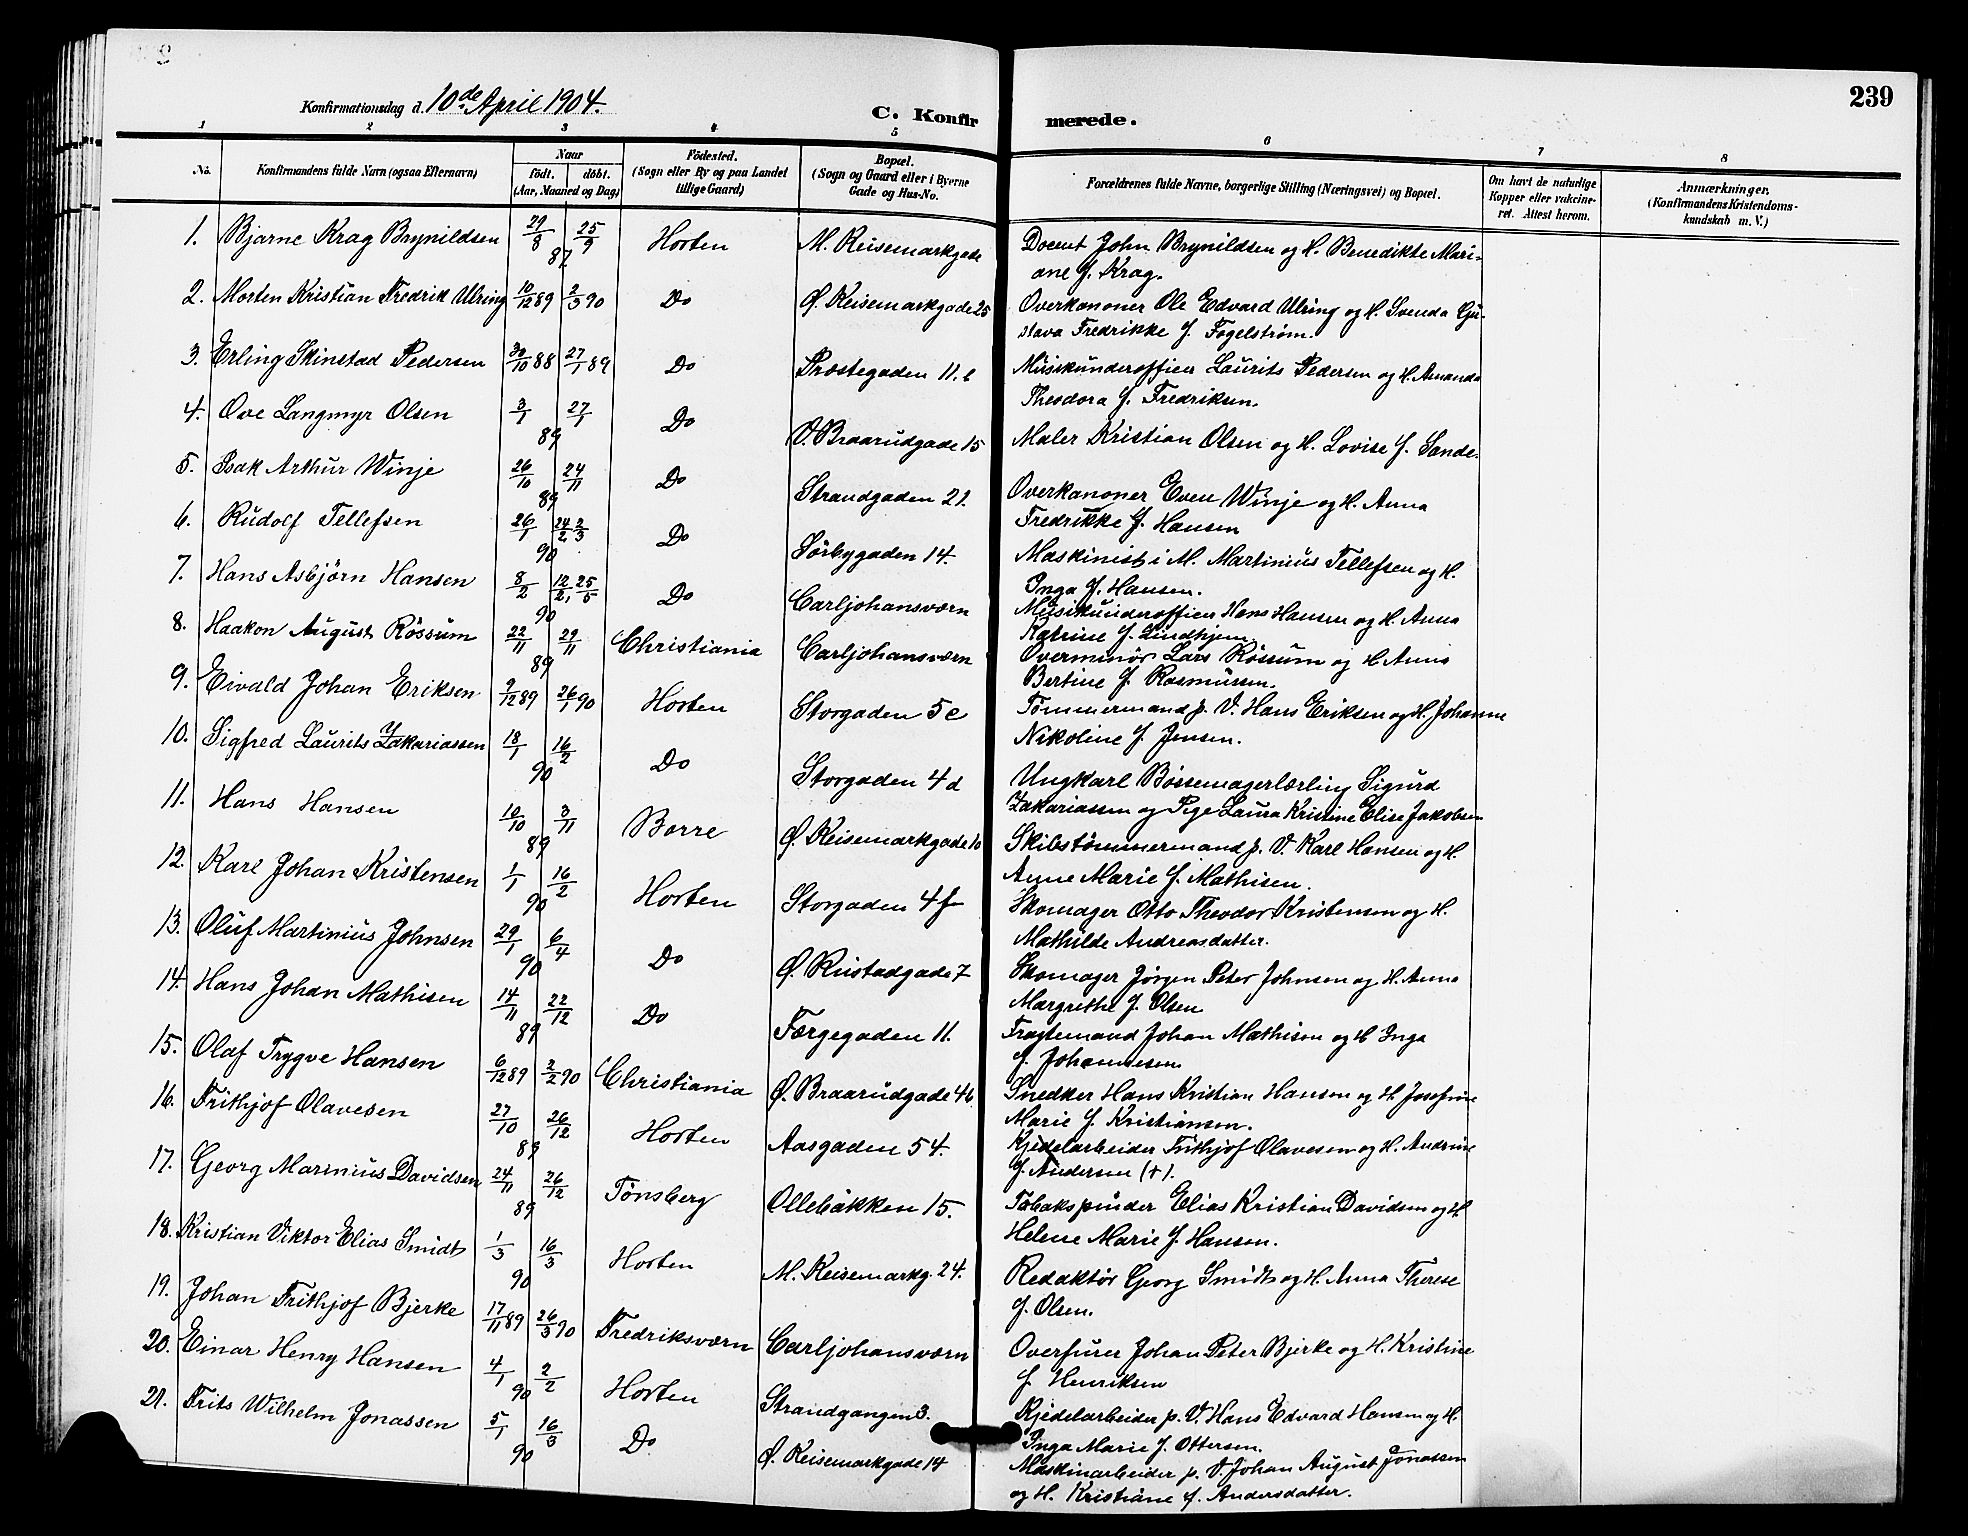 239
Konfirmationsdag d. 10de April 1904.
C. Konfirmerede.
1 2 3 4 5 6 7 8
No.
Konfirmandens fulde Navn (ogsaa Efternavn)
Naar
födt. döbt.
(Aar, Maaned og Dag)
Födested.
(Sogn eller By og paa Landet
tillige Gaard)
Bopæl.
(Sogn og Gaard eller i Byerne
Gade og Hus-No.
Forældrenes fulde Navne, borgerlige Stilling (Næringsvei) og Bopæl.
Om havt de naturlige
Kopper eller vakcine-
ret. Attest herom.
Anmærkninger,
(Konfirmandens Kristendoms-
kundskab m. V.)
1. Bjarne Krag Brynildsen 29/8 25/9 87 Horten M. Keisemarkgade Docent John Brynildsen og H. Benedikte Mari-
ane f. Krag.
2. Morten Kristian Fredrik Ulring 10/12 89 2/3 90 Do Ø. Keisemarkgade 25 Overkanoner Ole Edvard Ulring og H. Svenda Gu-
stava Fredrikke f. Fogelstrøm.
3. Erling Skinstad Pedersen 30/10 88 27/1 89 Do Præstegaden 11.b Musikunderofficer Laurits Pedersen og H. Amanda
Theodora f. Fredriksen.
4. Ove Langmyr Olsen 3/1 27/1 89 Do V. Braarudgade 15 Maler Kristian Olsen og H. Lovise f. Sande.
5. Isak Arthur Winje 26/10 24/11 89 Do Strandgaden 21. Overkanoner Even Winje og H. Anna
Fredrikke f. Hansen
6. Rudolf Tellefsen 26/1 24/2 2/3 90 Do Sørbygaden 14. Maskinist i M. Martinius Tellefsen og H.
Inga f. Hansen.
7. Hans Asbjörn Hansen 8/2 12/2, 25/5 90 Do Carljohansværn Musikunderofficer Hans Hansen og H. Anna
Katrine f. Lindhjem
8. Haakon August Róssum 22/11 29/11 89 Christiania Carljohansværn Overminør Lars Róssum og H Anna
Bertine f. Rasmussen.
9. Eivald Johan Eriksen 9/12 89 26/1 90 Horten Storgaden 5c Tømmermand p. V. Hans Eriksen og H. Johanne
Nikoline f. Jensen.
10. Sigfred Laurits Zakariassen 18/1 16/2 90 Do Storgaden 4d Ungkarl Bøssemagerlærling Sigurd
Zakariassen og Pige Laura Kristine Elise Jakobsen
11. Hans Hansen 10/10 3/11 89 Borre Ø. Keisemarkgade 10 Skibstømmermand p. V. Karl Hansen og H.
Anne Marie f. Mathisen.
12. Karl Johan Kristensen 1/1 16/2 90 Horten Storgaden 4f Skomager Otto Theodor Kristensen og H.
Mathilde Andreasdatter.
13. Oluf Martinius Johnsen 29/1 6/4 90 Do Ø. Rustadgade 7 Skomager Jørgen Peter Johnsen og H. Anna
Margrethe f. Olsen
14. Hans Johan Mathisen 14/11 22/12 89 Do Færgegaden 11. Fragtemand Johan Mathisen og H Inga
f. Johannesen
15. Olaf Trygve Hansen 6/12 89 2/2 90 Christiania Ø. Braarudgade 4b. Snedker Hans Kristian Hansen og H Josefine
Marie f. Kristiansen.
16. Frithjof Olavesen 27/10 26/12 89 Horten Aasgaden 54. Kjedelarbeider Frithjof Olavesen og H. Andrine
f. Andersen (+).
17. Georg Marinius Davidsen 24/11 26/12 89 Tønsberg Ollebakken 15. Tobakspinder Elias Kristian Davidsen og H
Helene Marie f. Hansen.
18. Kristian Viktor Elias Smidt 1/3 16/3 90 Horten M. Keisemarkg. 24. Redaktör Georg Smidt og H. Anna Therese
f. Olsen.
19. Johan Frithjof Bjerke 17/11 89 26/3 90 Fredriksværn Carljohansværn Overfurer Johan Peter Bjerke og H. Kristine
f. Henriksen
20. Einar Henry Hansen 4/1 2/2 90 Horten Strandgangen 3. Kjedelarbeider p. V. Hans Edvard Hansen og H.
Inga Marie f. Ottersen.
21. Frits Wilhelm Jonassen 5/1 16/3 90 Do Ø. Keisemarkgade 14 Maskinarbeider p. V. Johan August Jonassen
og H. Kristiane f. Andersdatter.